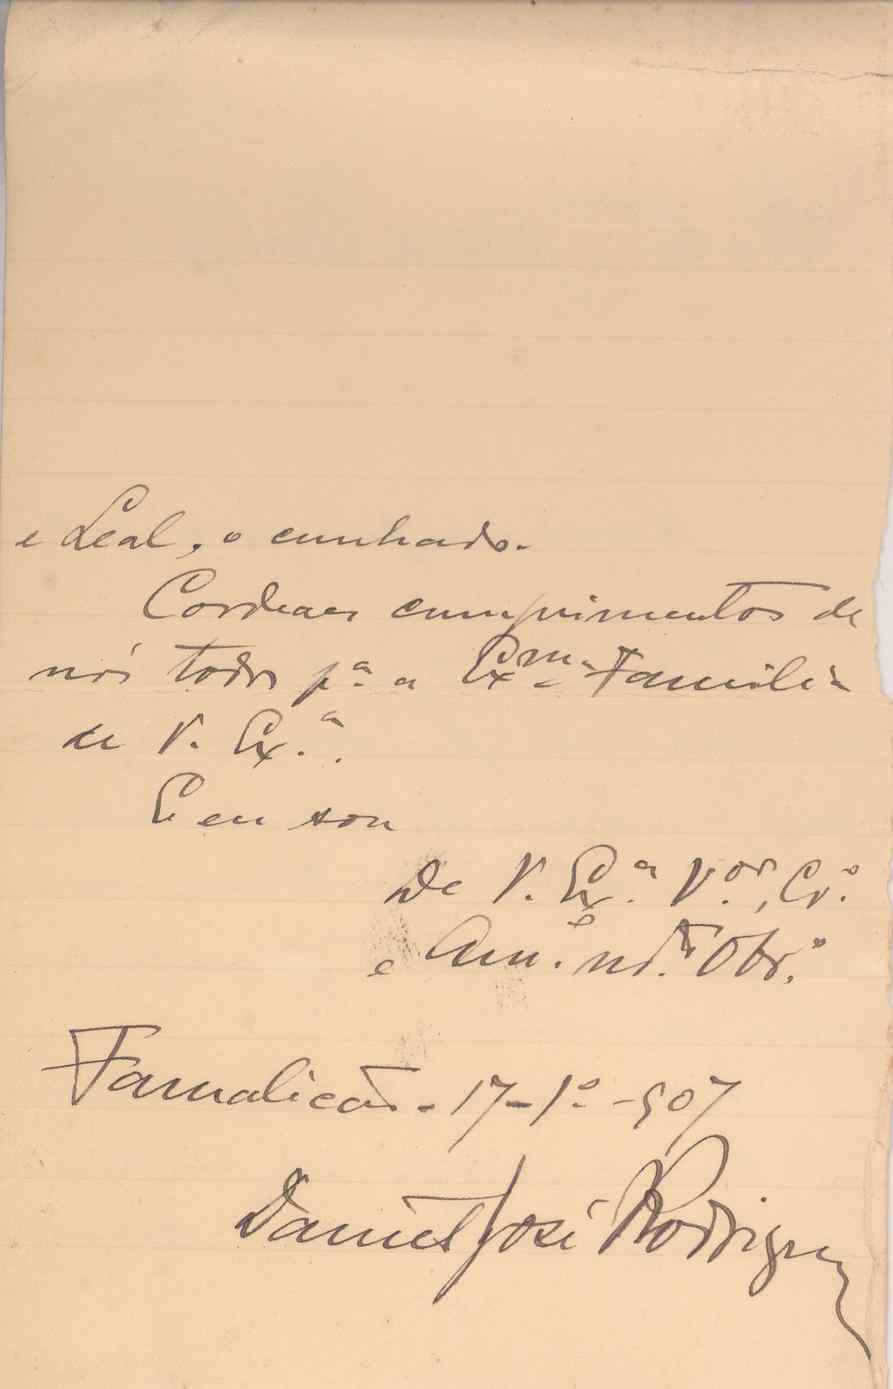 e Leal, o cunhado.
Cordeaes cumprimentos de
nós todos p.ª a Ex.mª Familia
de V. Ex.ª.
E eu sou
De V. Ex.ª V.or, Cr.º
e Am.º m.to Obr.º
Famalicão - 17-1º-907
Daniel José Rodrigues